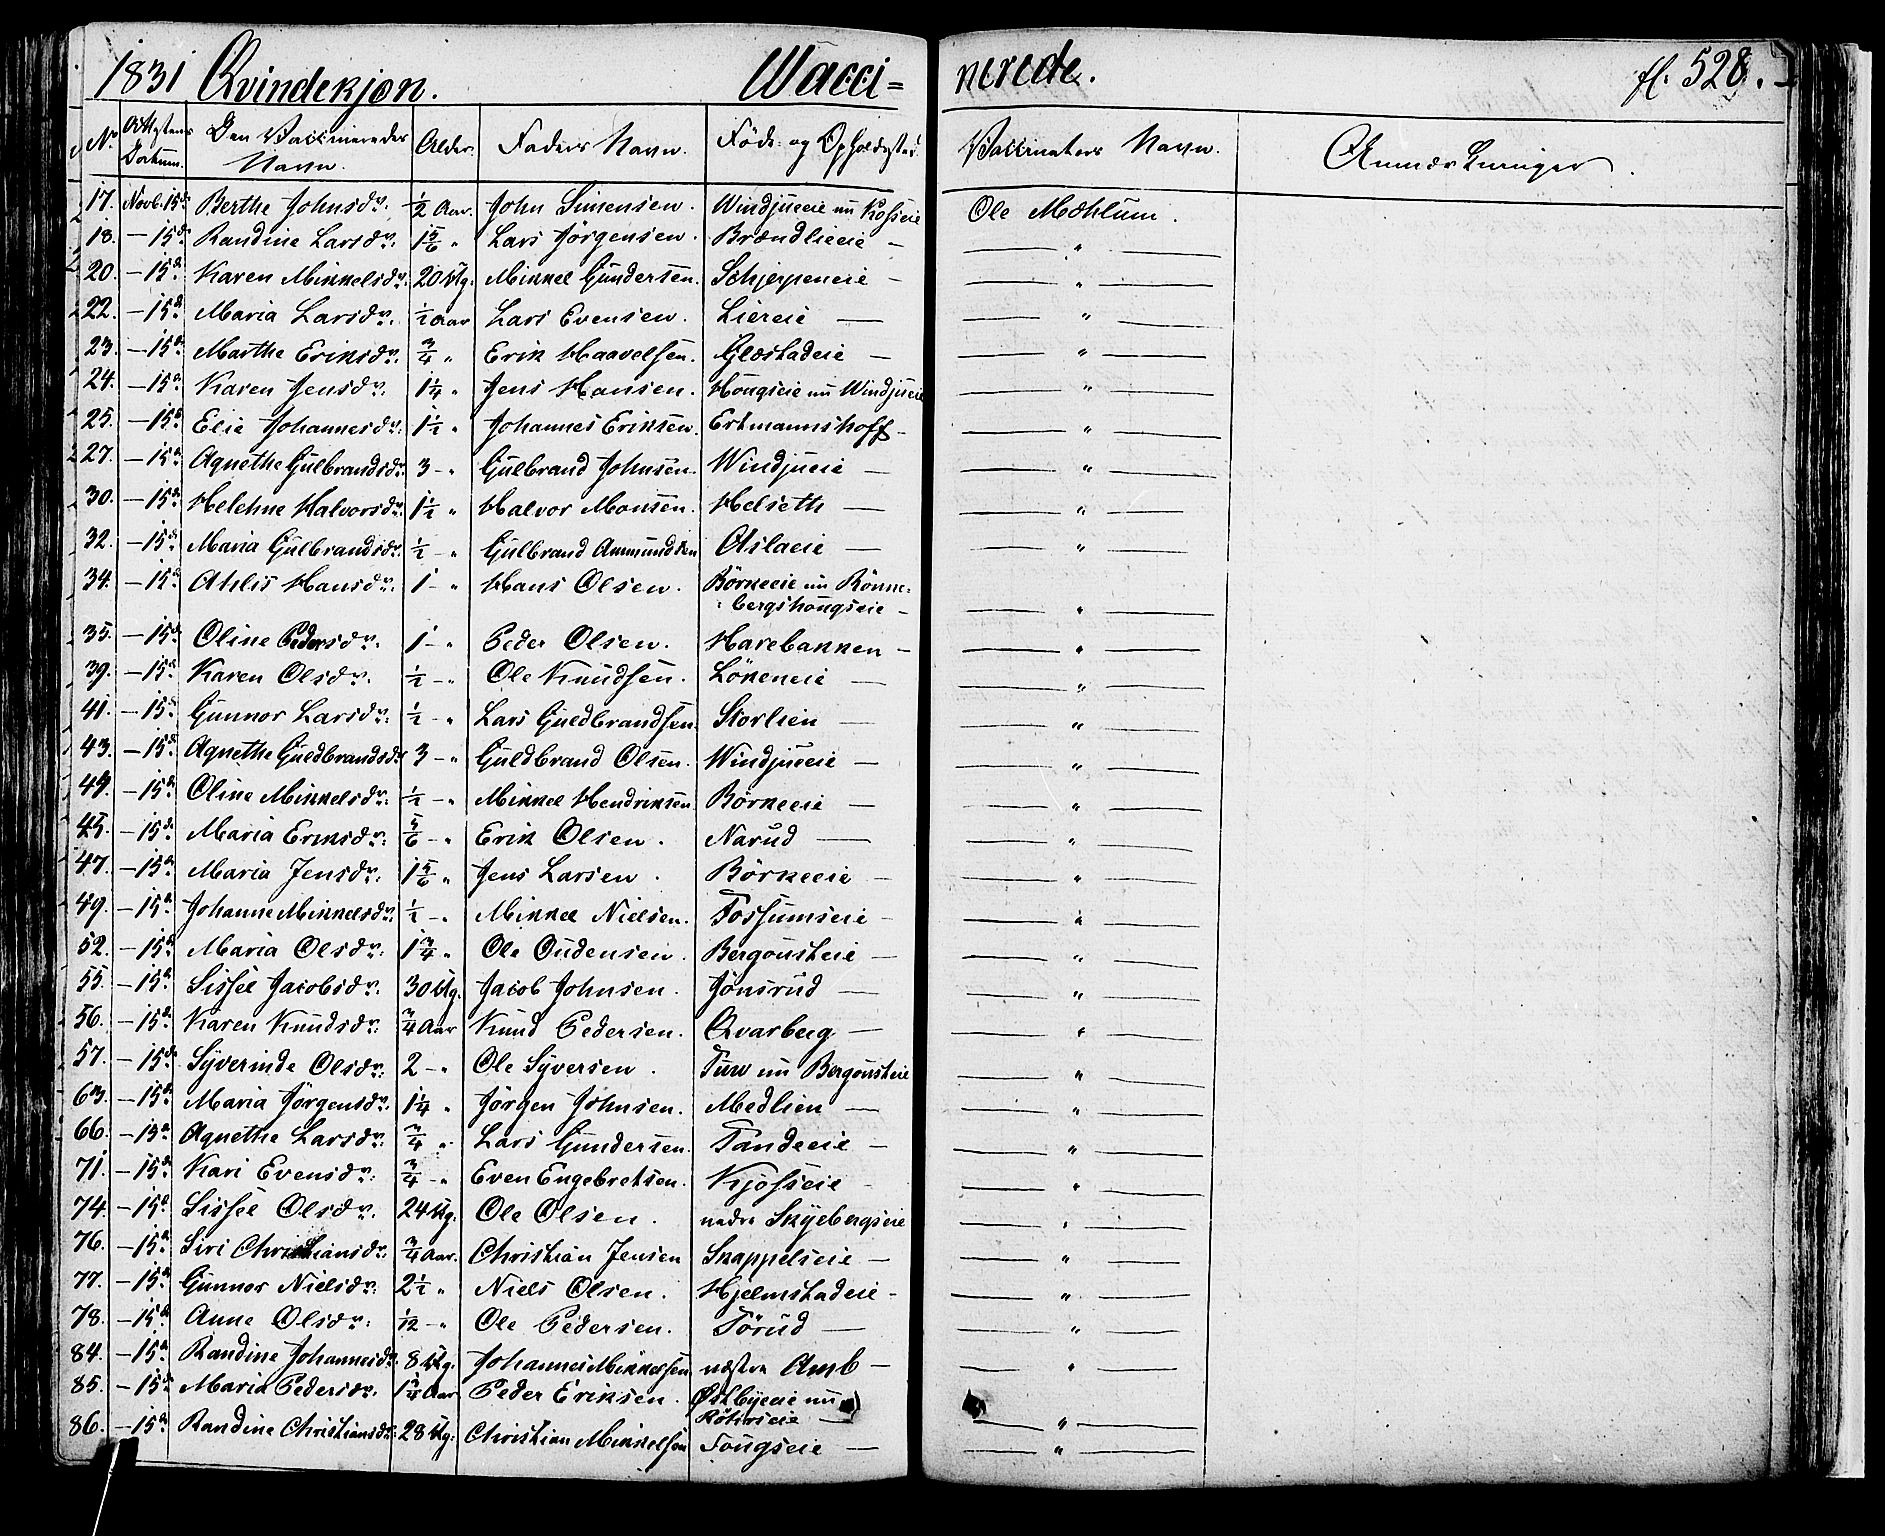 1831 Qvindekjön. Wacci= nerede. fl. 528.
No. Attestens Datum. Den Vaccineredes Navn. Alder. Faders Navn. Föde- og Opholdssted. Vaccinateurs Navn. Anmærkninger.
17. Novb. 15de Berthe Johnsdr. 1/2 Aar. John Simensen. Windjueeie nu Kosseie Ole Mæhlum.
18. — 15de Randine Larsdr. 1 5/6 " Lars Jörgensen. Brændlieeie — — " —
20. — 15de Karen Mikkelsdr. 20 Ug. Mikkel Gundersen. Schjerpeneie — — " —
22. — 15de Maria Larsdr. 1/2 Aar Lars Evensen. Liereie — — " —
23. — 15de Marthe Eriksdr. 3/4 " Erik Haavelsen. Glæstadeie — — " —
24. — 15de Karen Jensdr. 1 1/4 " Jens Hansen. Hougseie nu Windjueeie — " —
25. — 15de Elie Johannesdr. 1 1/2 " Johannes Eriksen. Ertmannshoff — — " —
27. — 15de Agnethe Gulbrandsdr. 3 — " Gulbrand Johnsen. Windjueie — — " —
30. — 15de Helehne Halvorsdr. 1 1/2 " Halvor Monsen. Helseth — — " —
32. — 15de Maria Gulbrandsdr. 1/2 — " Gulbrand Ammundsen Aslaeie — — " —
34. — 15de Ahlis Hansdr. 1 — " Hans Olsen. Börkeeie nu Rönne=
=bergshougseie — — " —
35. — 15de Oline Pedersdr. 1 — " Peder Olsen. Harebakken — — " —
39. — 15de Karen Olsdr. 1/2 — " Ole Knudsen. Lökeneie — — " —
41. — 15de Gunnor Larsdr. 1/2 — " Lars Guldbrandsen. Storlien — — " —
43. — 15de Agnethe Guldbrandsdr. 3 — " Guldbrand Olsen. Windjueeie — — " —
44. — 15de Oline Mikkelsdr. 1/2 — " Mikkel Hendriksen. Börkeeie — — " —
45. — 15de Maria Eriksdr. 5/6 — " Erik Olsen. Narud — — " —
47. — 15de Maria Jensdr. 1 5/6 " Jens Larsen. Börkeeie — — " —
49. — 15de Johanne Mikkelsdr. 1/2 — " Mikkel Nielsen. Fossumseie — — " —
52. — 15de Maria Olsdr. 1 3/4 " Ole Oudensen. Bergousteie — — " —
55. — 15de Lissée Jacobsdr. 30 Ug. Jacob Johnsen. Jönsrud — — " —
56. — 15de Karen Knudsdr. 3/4 Aar Knud Pedersen. Qvarberg — — " —
57. — 15de Syverinde Olsdr. 2 — " Ole Syversen. Tuw nu Bergousteie — " —
63. — 15de Maria Jörgensdr. 1 1/4 " Jörgen Johnsen. Medlien — — " —
66. — 15de Agnethe Larsdr. 3/4 " Lars Gundersen. Tandeeie — — " —
71. — 15de Kari Evensdr. 3/4 — " Even Engebretsen. Kjösseie — — " —
74. — 15de Lissée Olsdr. 24 Ug. Ole Olsen. nedre Skyebergseie — " —
76. — 15de Siri Christiansdr. 3/4 Aar. Christian Jensen Skappelseie — — " —
77. — 15de Gunnor Nielsdr. 2 1/2 " Niels Olsen. Hjelmstadeie — — " —
78. — 15de Anne Olsdr. 1/12 — " Ole Pedersen. Törud — — " —
84. — 15de Randine Johannesdr. 8 Ug. Johannes Mikkelsen næstre Amb — — " —
85. — 15de Maria Pedersdr. 1 3/4 Aar Peder Eriksen. Östbyeeie nu
Röhrseie — — " —
86. — 15de Randine Christiansdr. 28 Ug. Christian Mikkelsen Fougseie — — " —